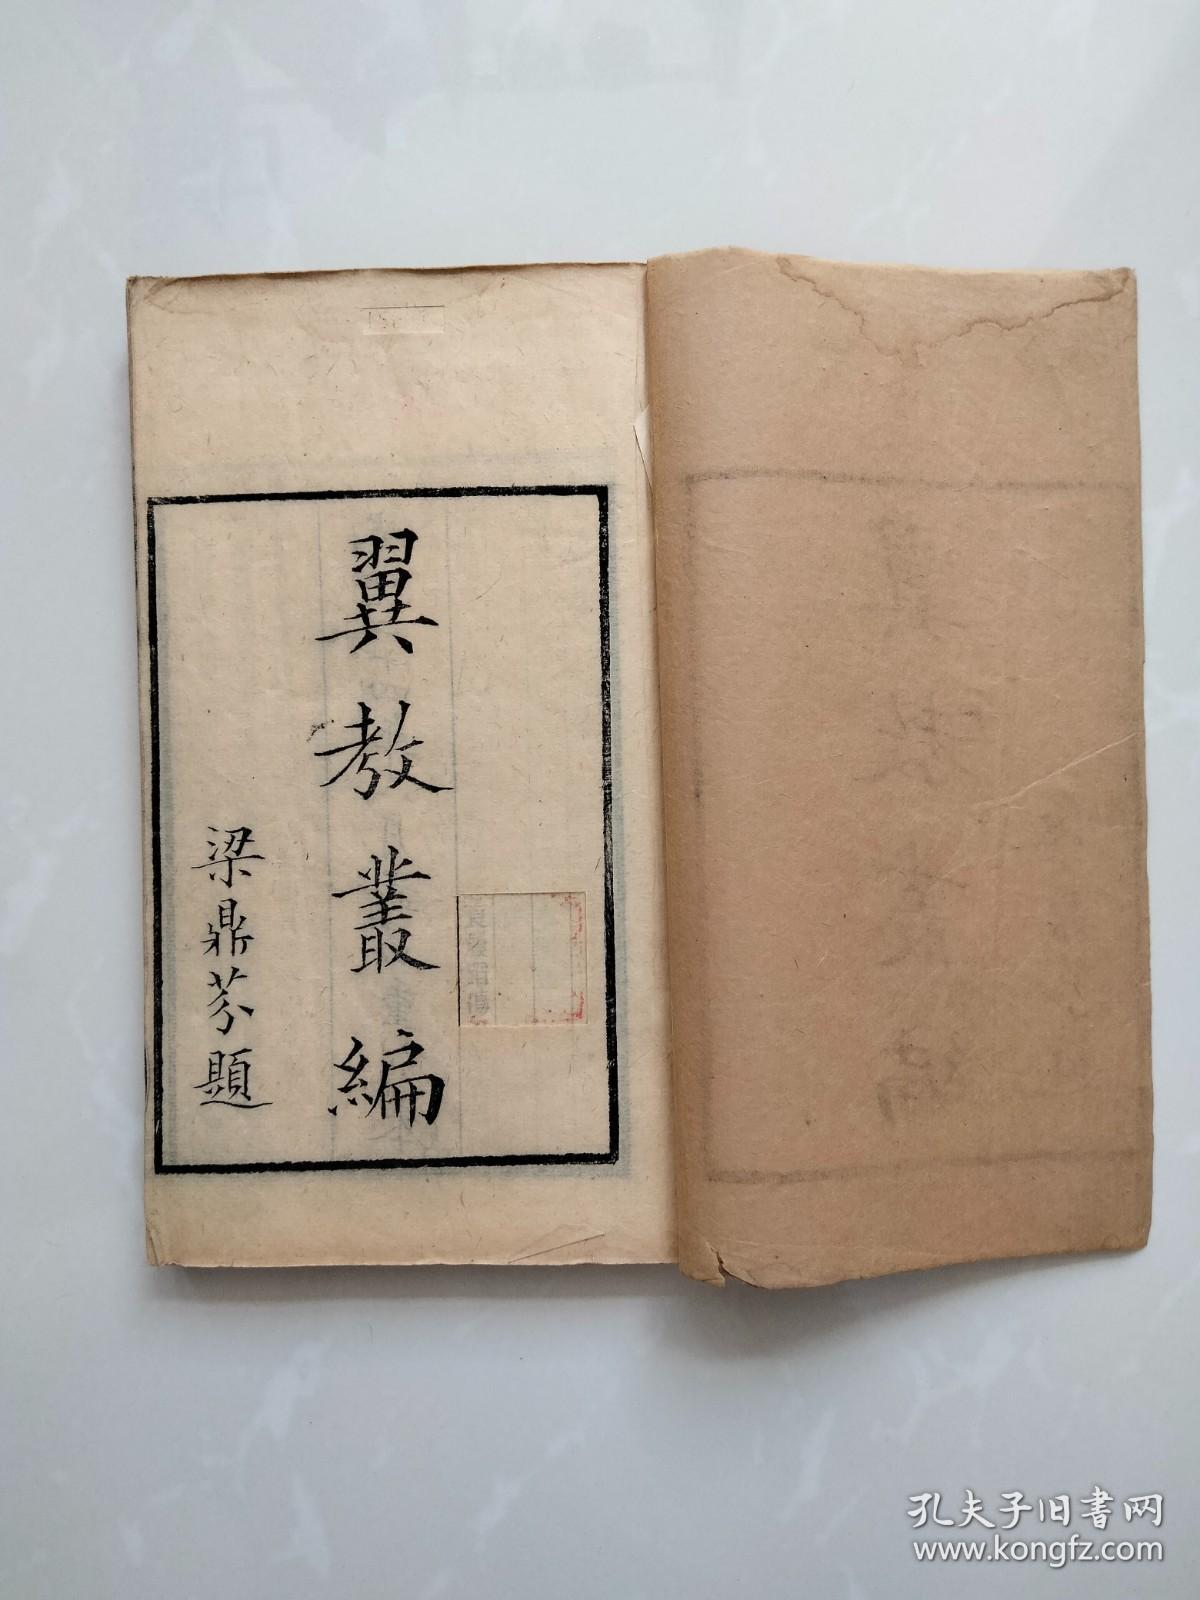 翼教叢編
梁鼎芬題
孔夫子旧书网
www.kongfz.com